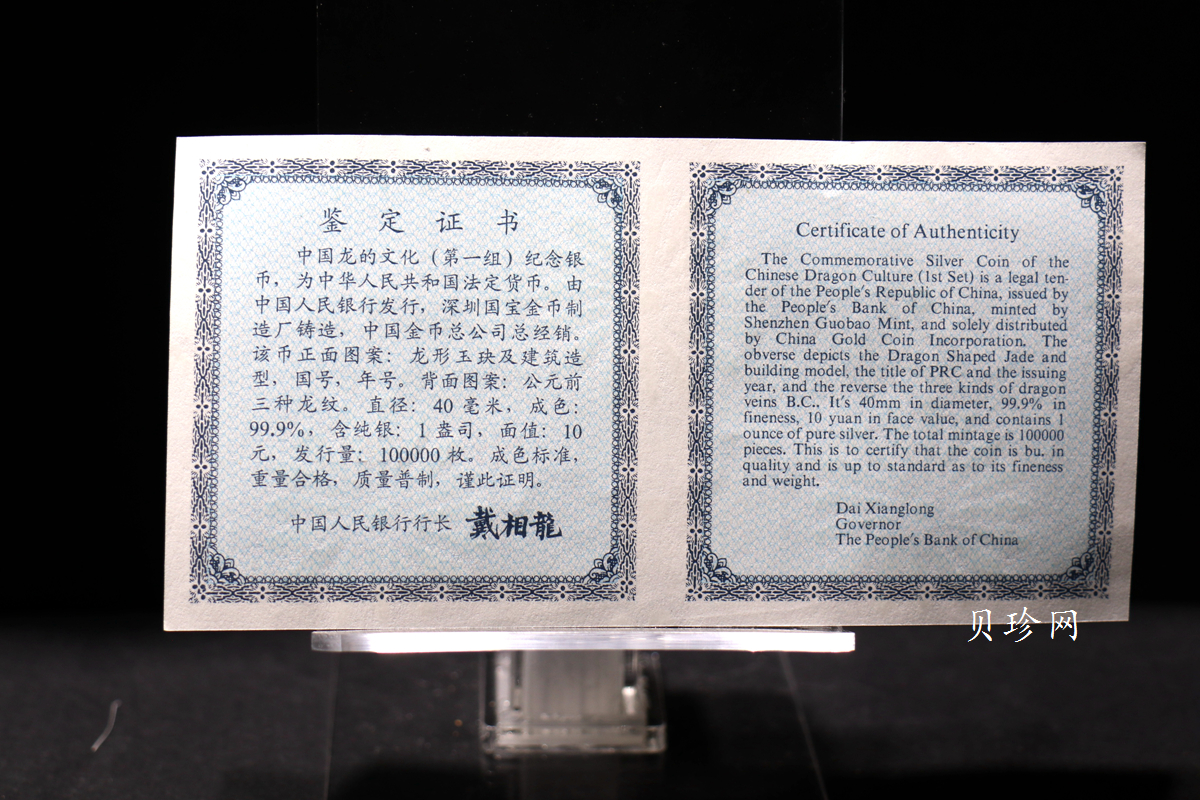 鉴定证书
中国龙的文化（第一组）纪念银
币，为中华人民共和国法定货币。由
中国人民银行发行，深圳国宝金币制
造厂铸造，中国金币总公司总经销。
该币正面图案：龙形玉玦及建筑造
型，国号，年号。背面图案：公元前
三种龙纹。直径：40毫米，成色：
99.9%，含纯银：1盎司，面值：10
元，发行量：100000枚。成色标准，
重量合格，质量普制，谨此证明。
中国人民银行行长 戴相龍
Certificate of Authenticity
The Commemorative Silver Coin of the
Chinese Dragon Culture (1st Set) is a legal ten-
der of the People's Republic of China, issued by
the People's Bank of China, minted by
Shenzhen Guobao Mint, and solely distributed
by China Gold Coin Incorporation. The
obverse depicts the Dragon Shaped Jade and
building model, the title of PRC and the issuing
year, and the reverse the three kinds of dragon
veins B.C.. It's 40mm in diameter, 99.9% in
fineness, 10 yuan in face value, and contains 1
ounce of pure silver. The total mintage is 100000
pieces. This is to certify that the coin is bu. in
quality and is up to standard as to its fineness
and weight.
Dai Xianglong
Governor
The People's Bank of China
贝珍网